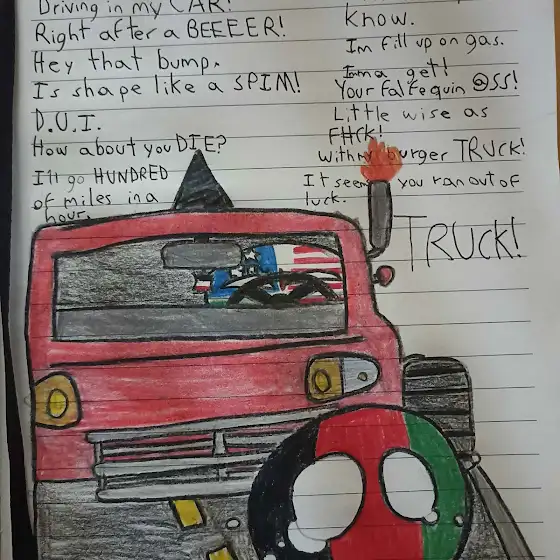 Driving in my CAR!
Right after a BEEEER!
Hey that bump.
Is shape like a SPIM!
D.U.I.
How about you DIE?
I'll go HUNDRED
of miles in a
hour.
know.
Im fill up on gas.
Imma get!
Your
Little wise as
FH¢k!
with my burger TRUCK!
It seem you ran out of
luck.
TRUCK!